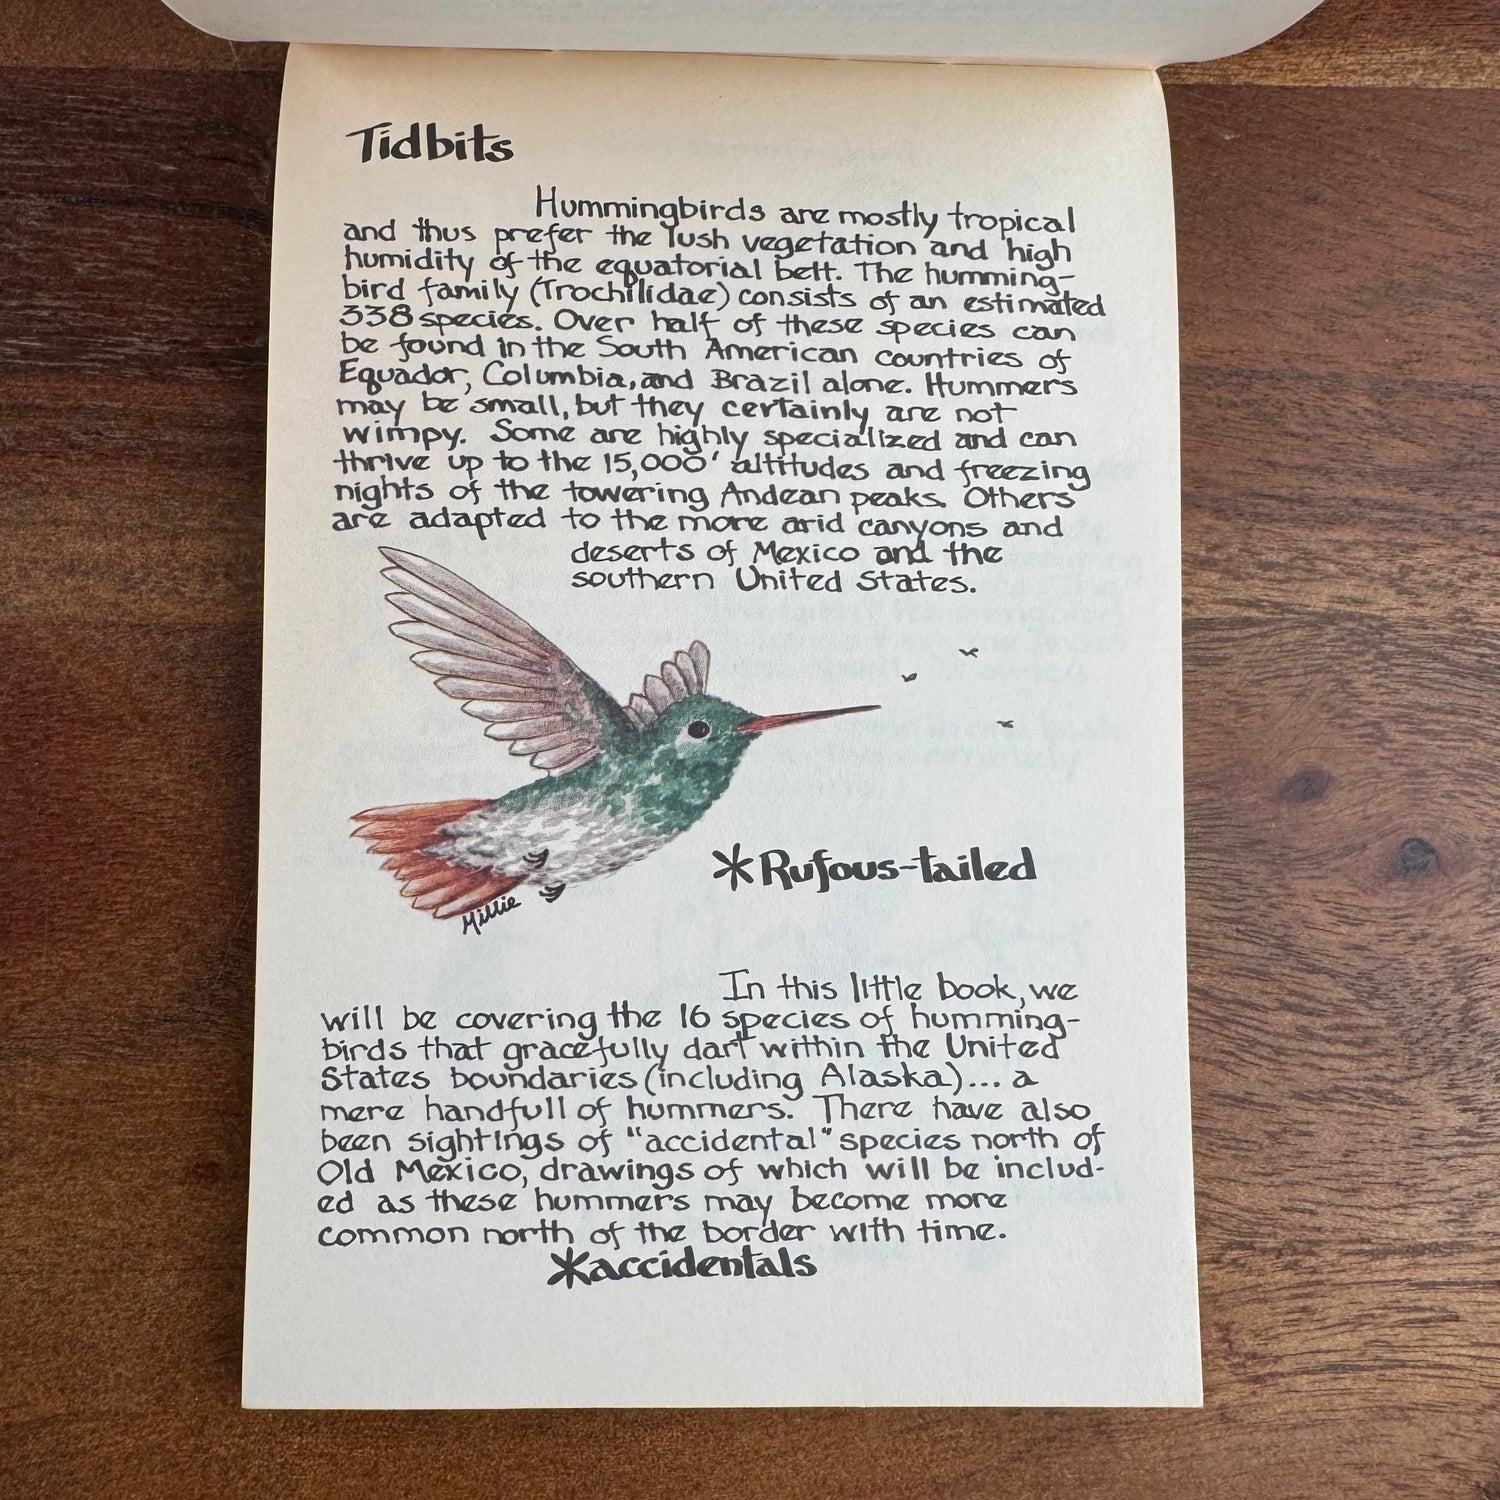 Tidbits
Hummingbirds are mostly tropical
and thus prefer the lush vegetation and high
humidity of the equatorial belt. The humming-
bird family (Trochilidae) consists of an estimated
338 species. Over half of these species can
be found in the South American countries of
Equador, Columbia, and Brazil alone. Hummers
may be small, but they certainly are not
wimpy. Some are highly specialized and can
thrive up to the 15,000' altitudes and freezing
nights of the towering Andean peaks. Others
are adapted to the more arid canyons and
deserts of Mexico and the
southern United States.
*Rufous-tailed
Millie
In this little book, we
will be covering the 16 species of humming-
birds that gracefully dart within the United
States boundaries (including Alaska)... a
mere handfull of hummers. There have also
been sightings of "accidental" species north of
Old Mexico, drawings of which will be includ-
ed as these hummers may become more
common north of the border with time.
*accidentals